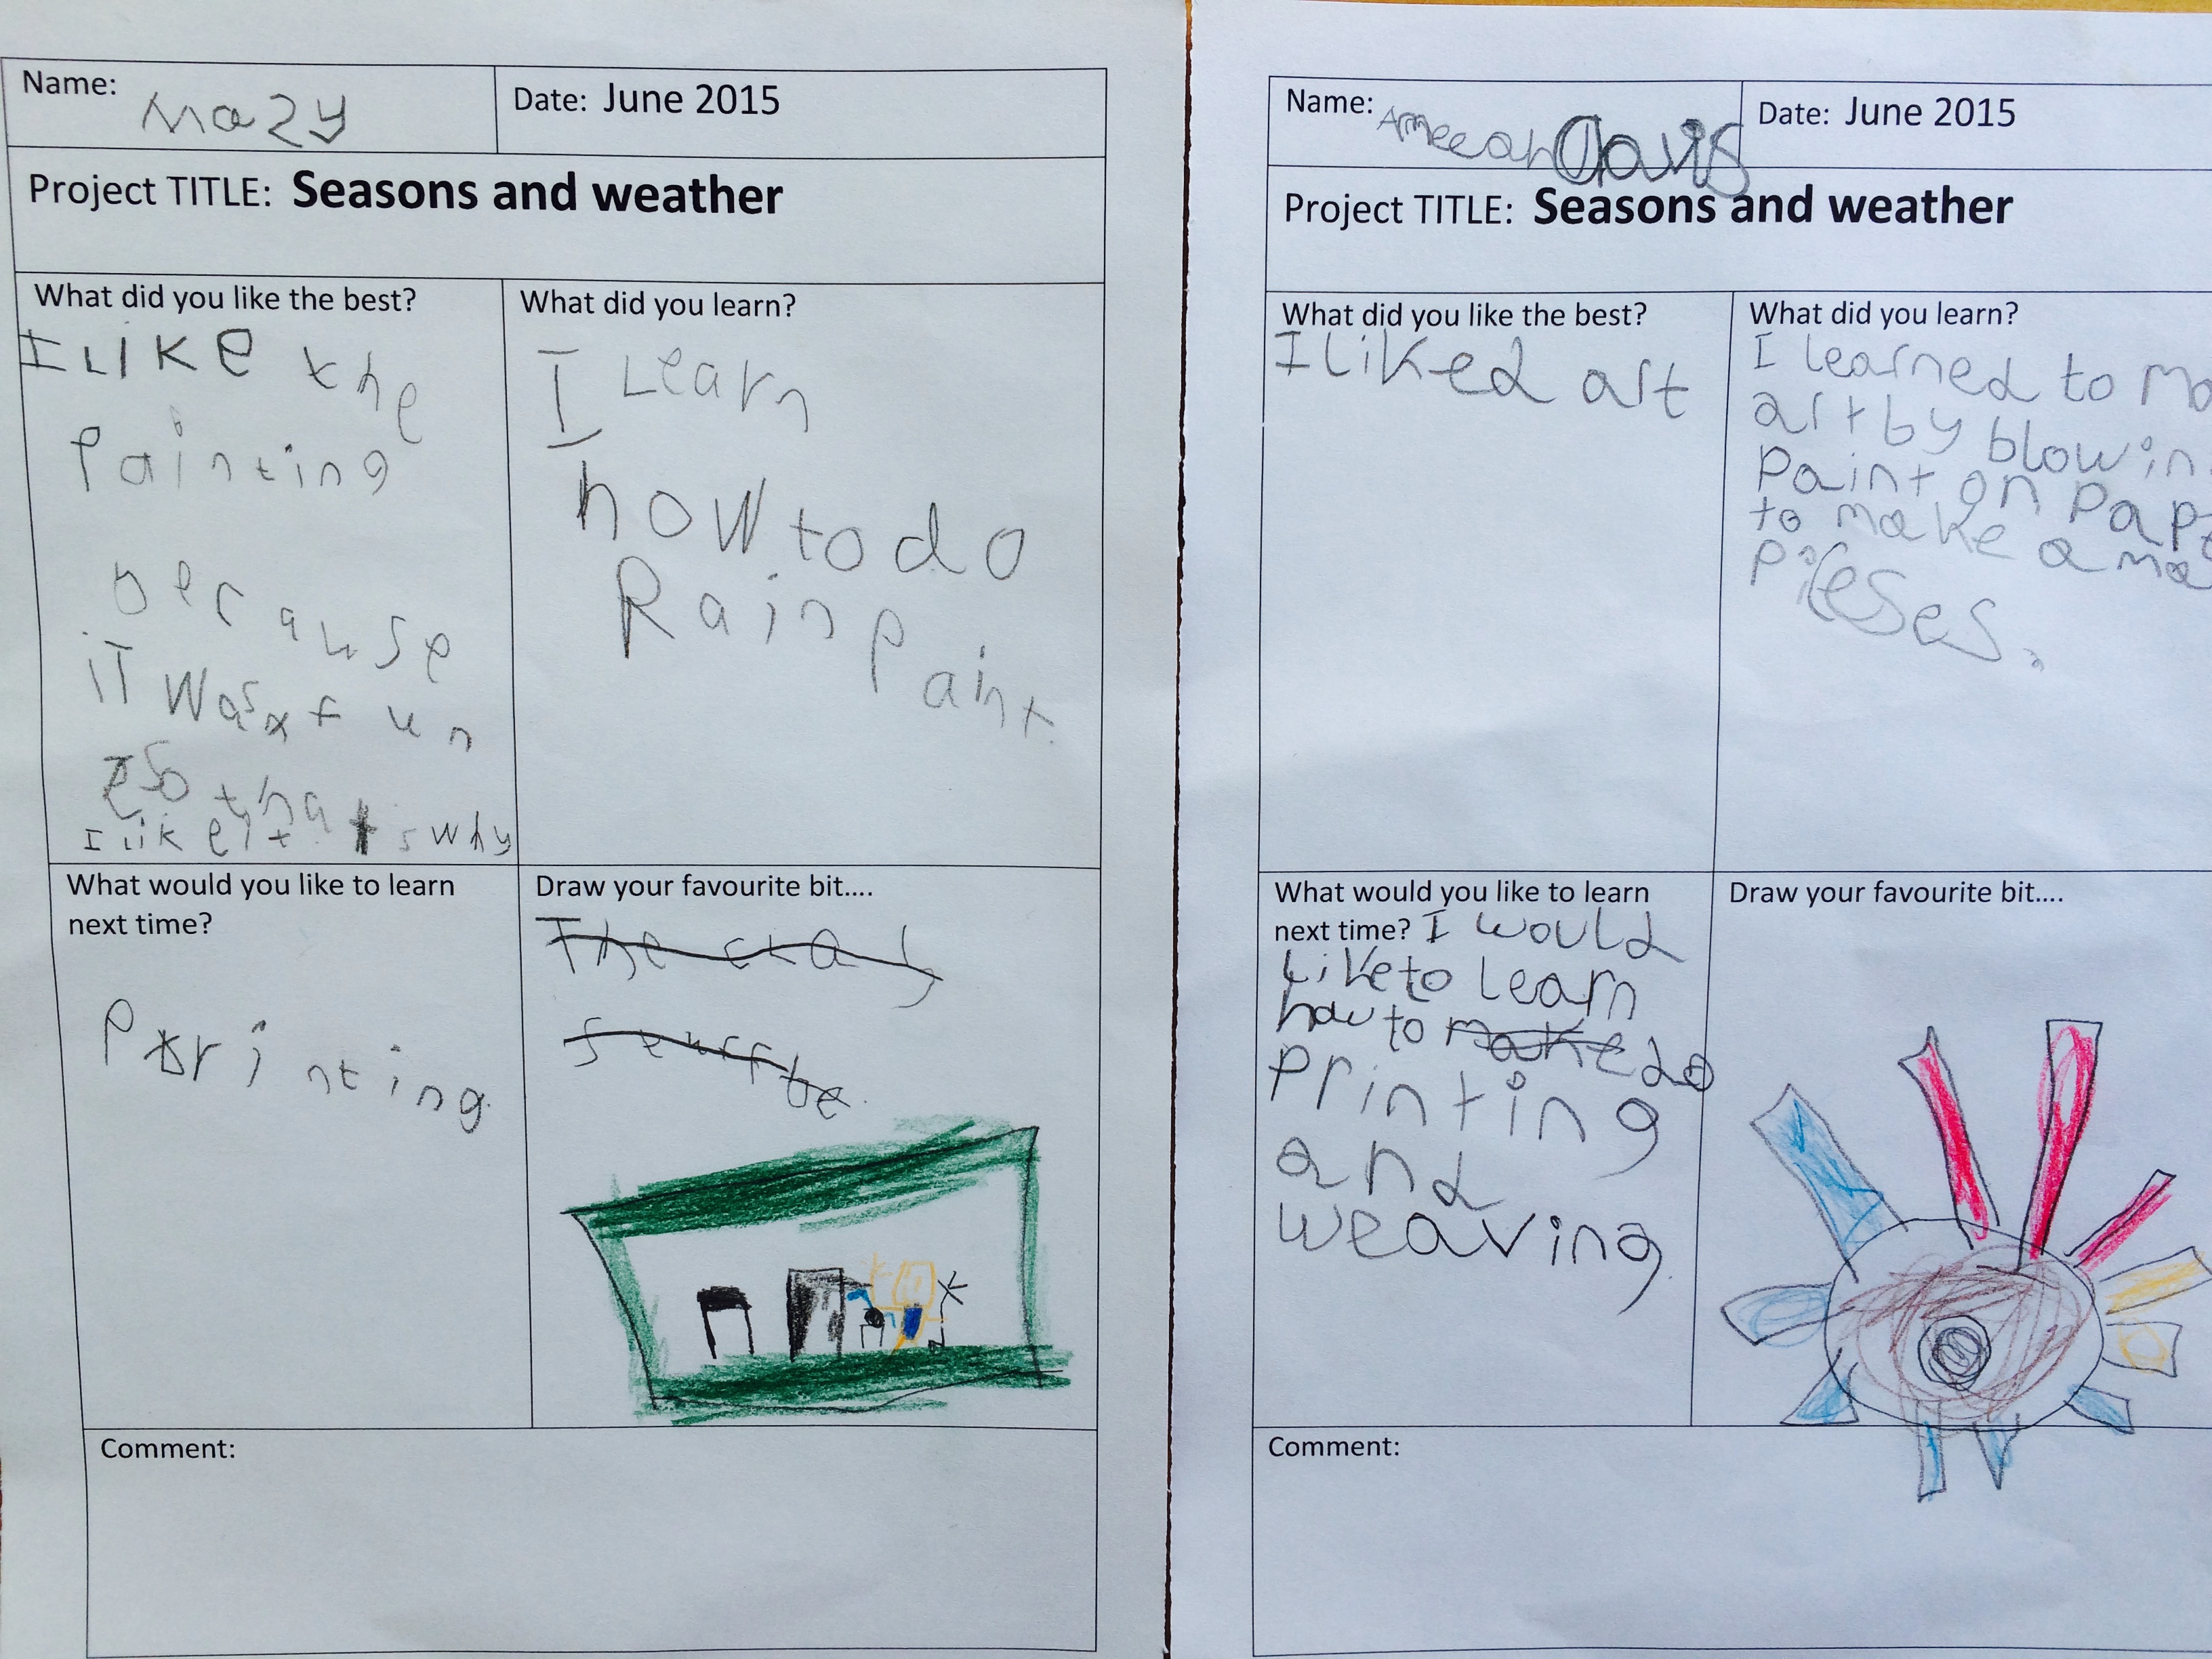 Name: Mazy
Date: June 2015
Project TITLE: Seasons and weather
What did you like the best?
I Like the
Painting
because
iT Was fun
so that's why
I like it
What did you learn?
I Learn
how to do
Rain Paint.
What would you like to learn
next time?
Printing.
Draw your favourite bit....
The
Comment:
Name: Ameeah Davis
Date: June 2015
Project TITLE: Seasons and weather
What did you like the best?
I liked art
What did you learn?
I learned to
art by blowin
Paint on Pap
to make a
Pieses.
What would you like to learn
next time? I would
Like to Learn
how to make do
Printing
and
weaving.
Draw your favourite bit....
Comment: